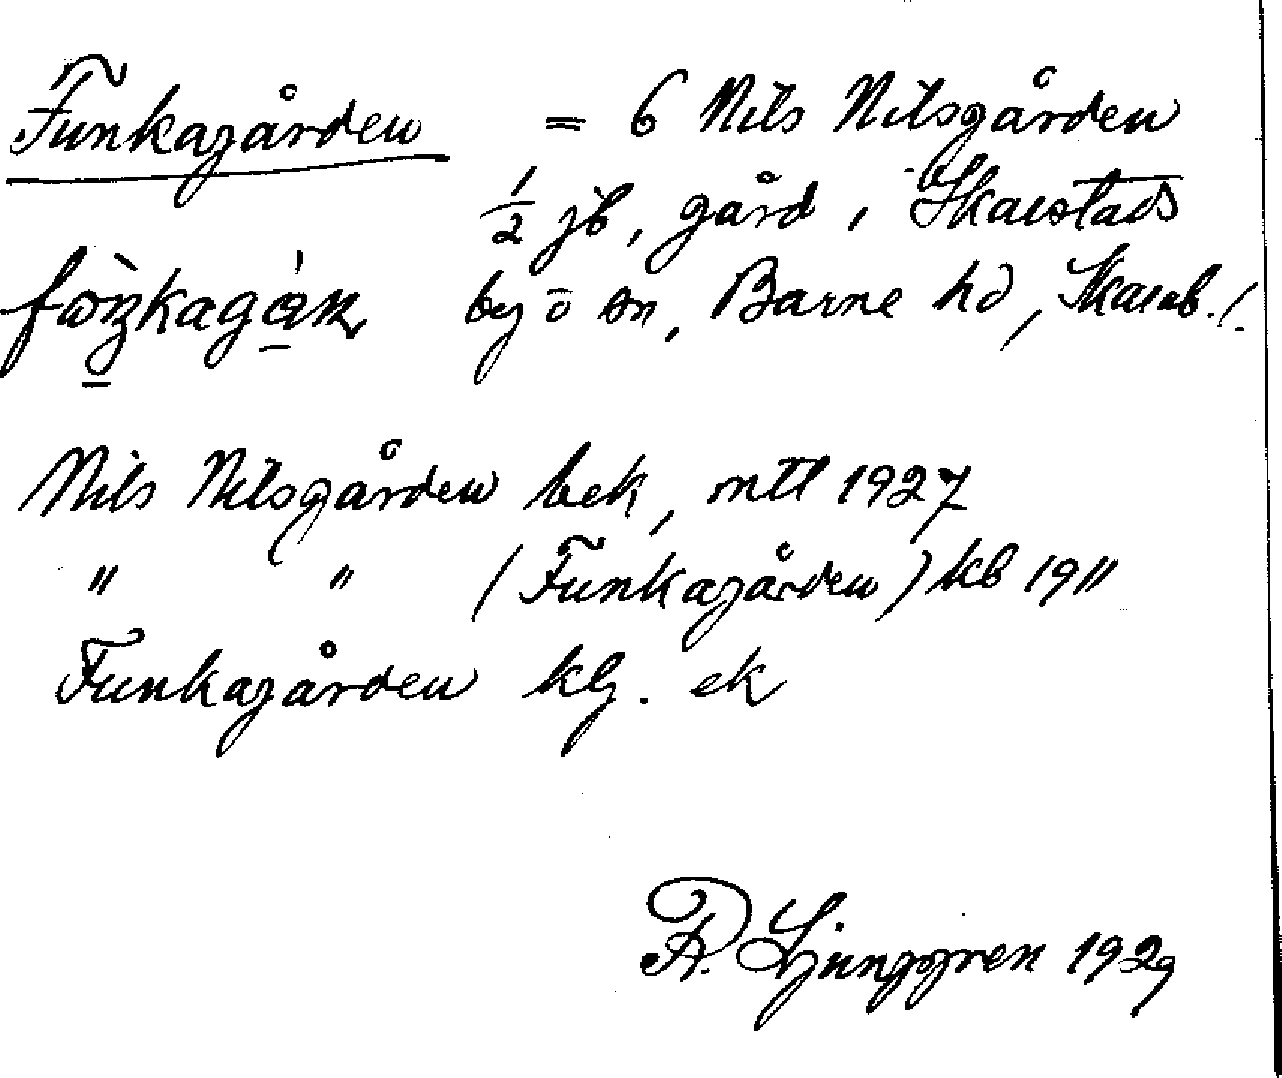 Funkagården = 6 Nils Nilsgården
1/2 jb, gård i Skarstads
by o sn, Barne hd, Skarab. l.
Nils Nilsgården bek, mtl 1927
" " (Funkagården) kb 1911
Funkagården klg. ek
Fr. Ljunggren 1929